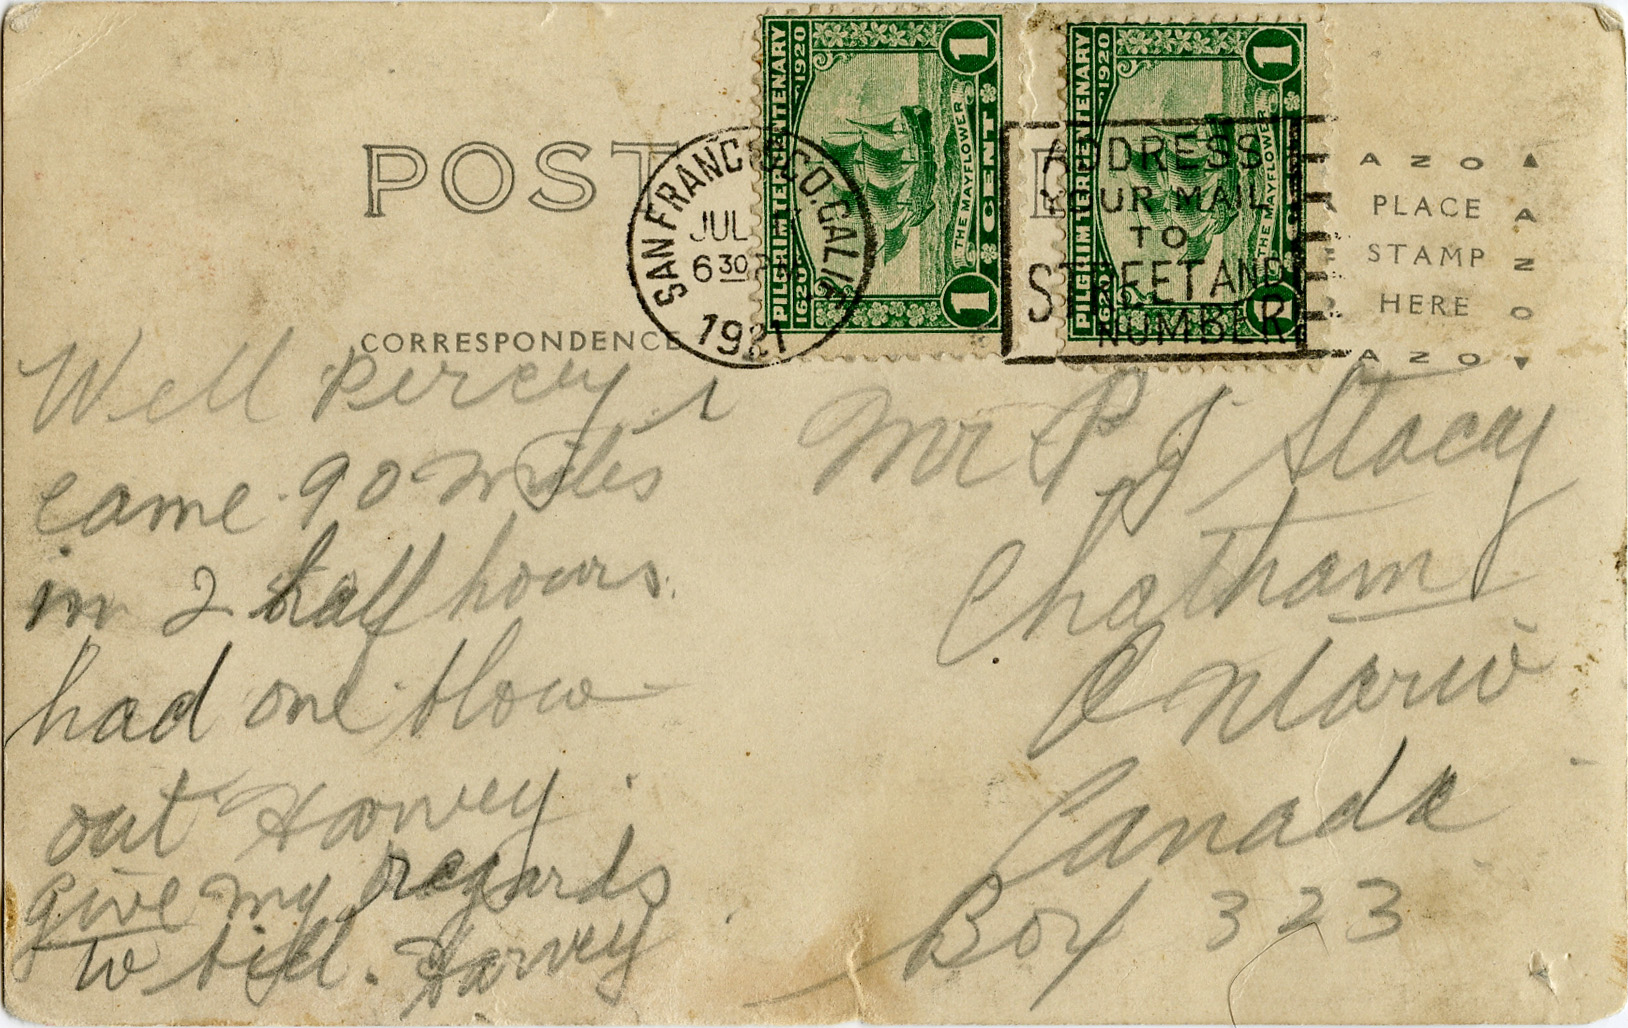 POST
SAN FRANCISCO, CALIF.
JUL
6 30 PM
1921
PILGRIM TERCENTENARY
1620 1920
THE MAYFLOWER
1 CENT 1
PILGRIM TERCENTENARY
1620 1920
THE MAYFLOWER
1
ADDRESS
YOUR MAIL
TO
STREET AND
NUMBER
AZO
PLACE
STAMP
HERE
AZO
AZO
CORRESPONDENCE
Well Percy I
came 90 miles
in 2 half hours
had one blow
out Harvey
give my regards
to bill. Harvey
Mr P J Stacey
Chatham
Ontario
Canada
Box 323